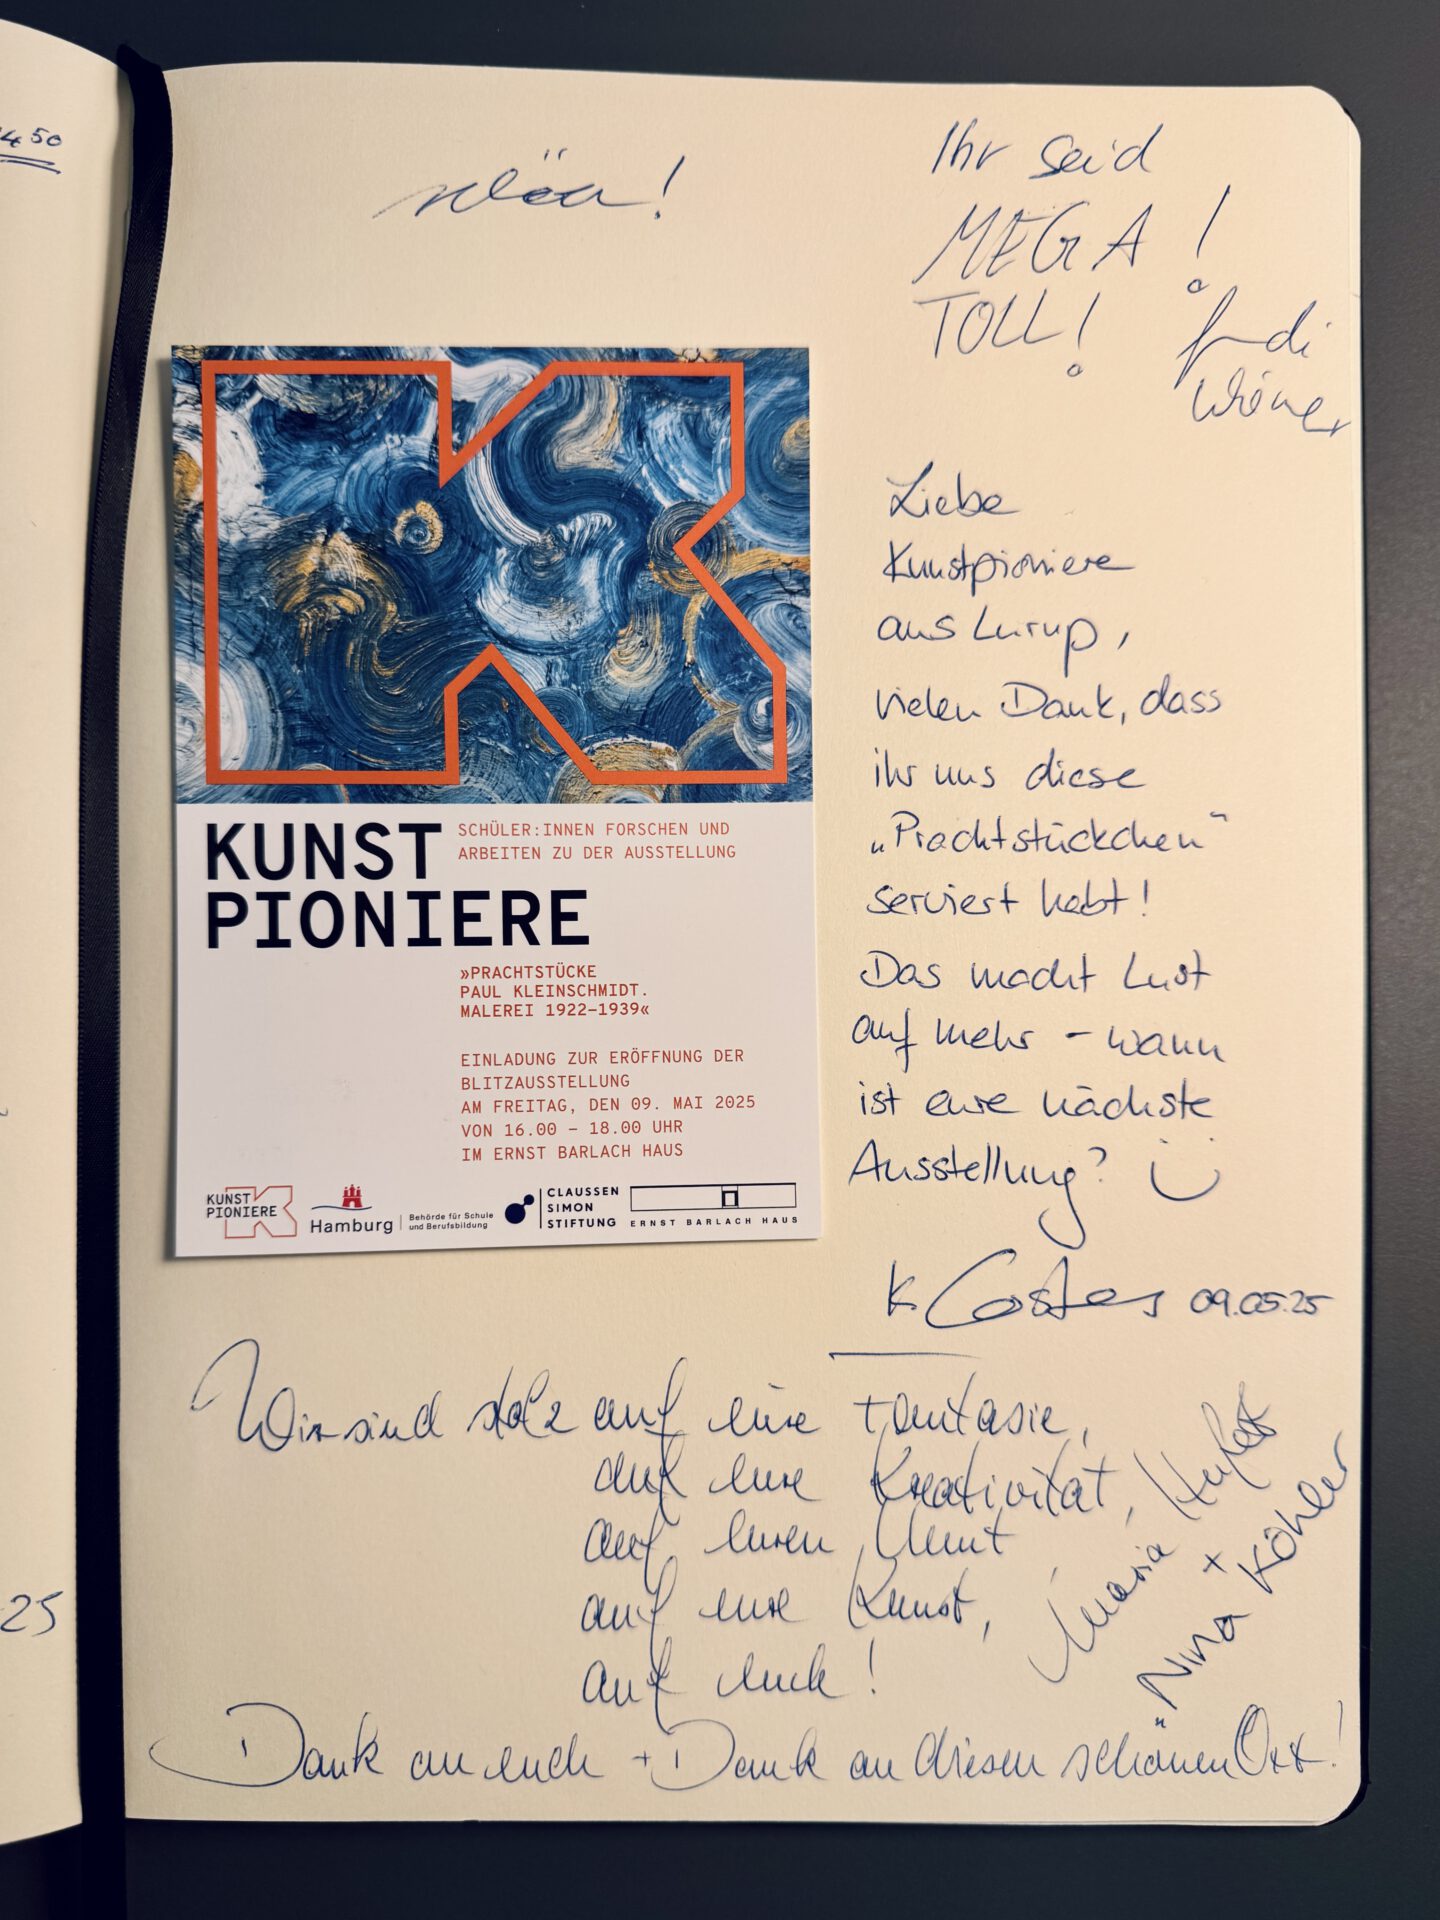 450
Ihr seid
MEGA!
TOLL!
Liebe
Kunstpioniere
aus Lurup,
vielen Dank, dass
ihr uns diese
„Prachtstückchen“
serviert habt!
Das macht Lust
auf mehr – wann
ist eure nächste
Ausstellung?
K. 09.05.25
KUNST
PIONIERE
SCHÜLER:INNEN FORSCHEN UND
ARBEITEN ZU DER AUSSTELLUNG
»PRACHTSTÜCKE
PAUL KLEINSCHMIDT.
MALEREI 1922–1939«
EINLADUNG ZUR ERÖFFNUNG DER
BLITZAUSSTELLUNG
AM FREITAG, DEN 09. MAI 2025
VON 16.00 – 18.00 UHR
IM ERNST BARLACH HAUS
KUNST
PIONIERE
Hamburg
Behörde für Schule
und Berufsbildung
CLAUSSEN
SIMON
STIFTUNG
ERNST BARLACH HAUS
Wir sind stolz auf eure Fantasie,
auf eure Kreativität,
auf euren Mut,
auf eure Kunst,
auf euch!
Maria
+
Nina Köhler
Dank an euch + Dank an diesen schönen Ort!
25